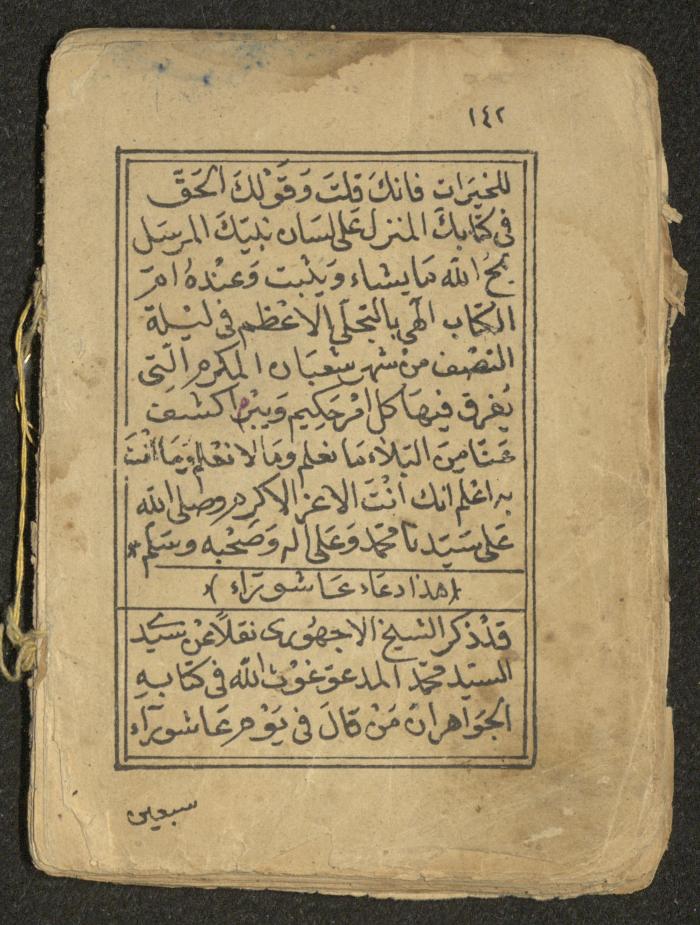 ١٤٢
للخيرات فانك قلت وقولك الحق
فى كتابك المنزل على لسان نبيك المرسل
يمح الله ما يشاء ويثبت وعنده امّ
الكتاب الهى بالتجلى الاعظم فى ليلة
النصف من شهر شعبان المكرم التى
يفرق فيها كل امر حكيم ويبرم اكشف
عنا من البلاء ما نعلم وما لا نعلم وما انت
به اعلم انك انت الاعز الاكرم وصلى الله
على سيدنا محمد وعلى اله وصحبه وسلم
(هذا دعاء عاشوراء)
قد ذكر الشيخ الاجهورى نقلا عن سيد
السيد محمد المدعو غوث الله فى كتابه
الجواهر ان من قال فى يوم عاشورآء
سبعين